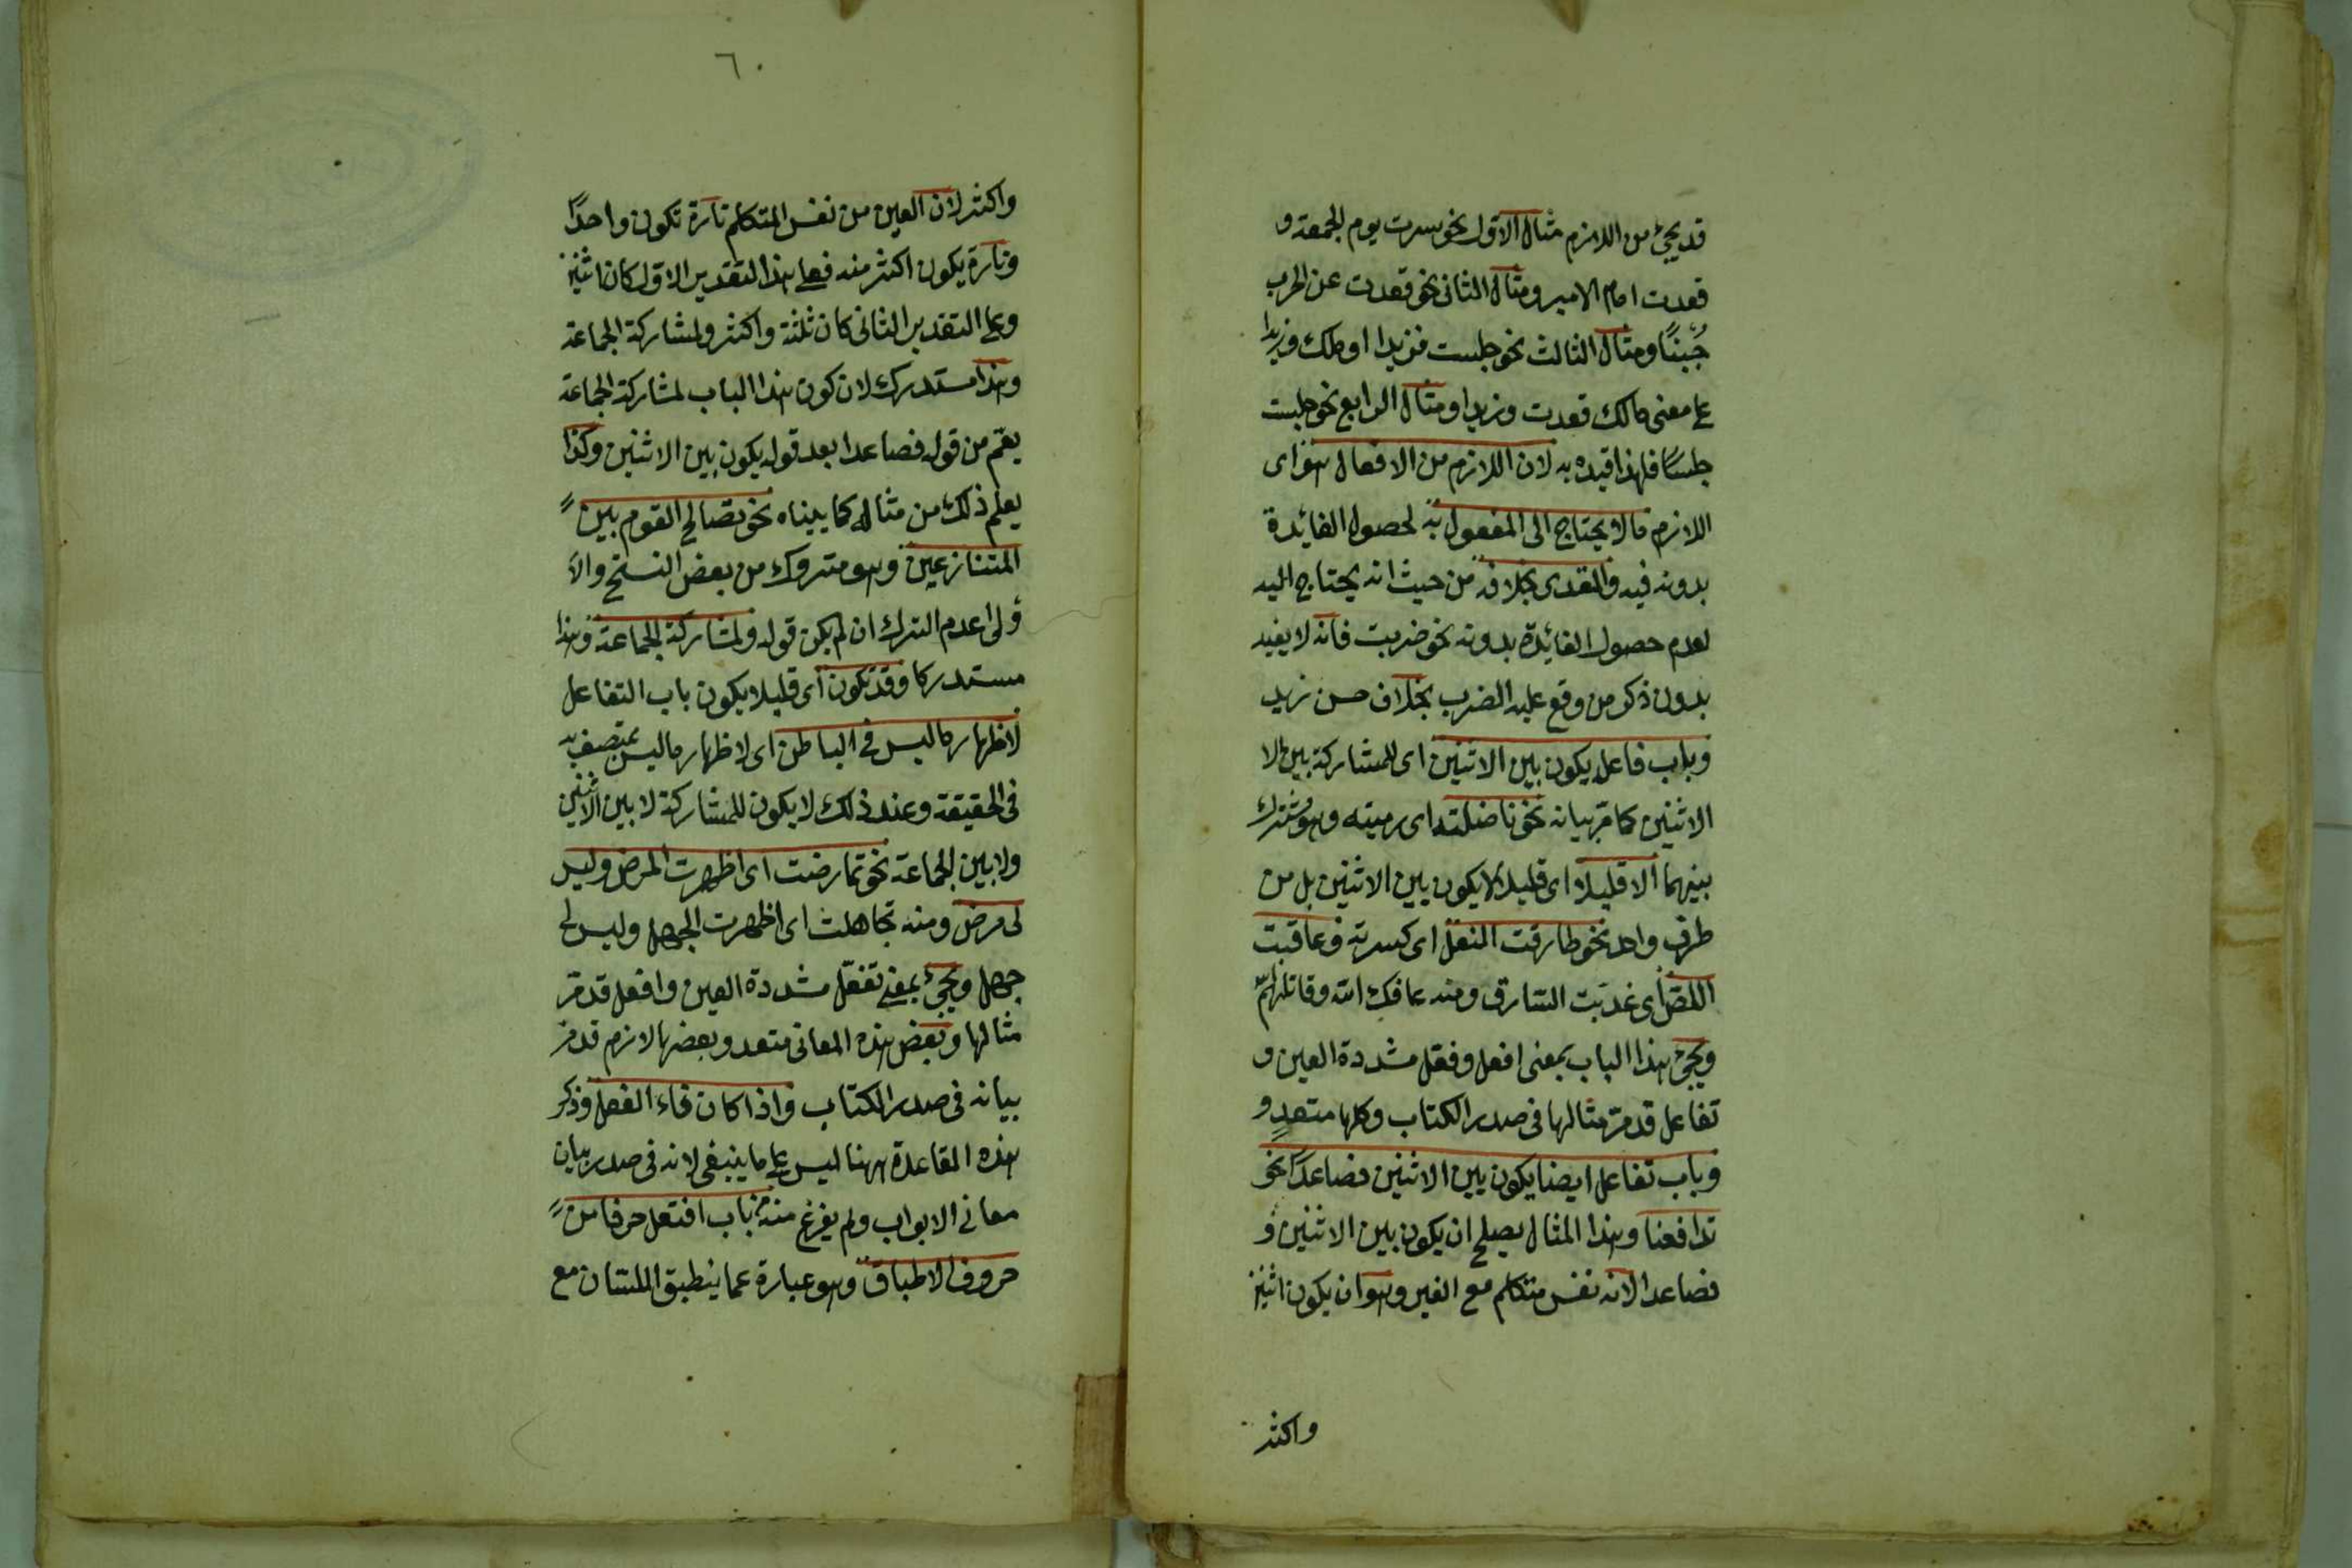 قد يجئ من اللازم مثال الاول نحو سرت يوم الجمعة و
قعدت امام الامير ومثال الثانى نحو قعدت عن الحرب
جُبنًا ومثال الثالث نحو جلست فزيدا او ملك وزيدا
على معنى مالك قعدت وزيدا ومثال الرابع نحو جلست
جلسًا فلهذا قيده به لان اللازم من الافعال هو اى
اللازم ما لا يحتاج الى المفعول به لحصول الفائدة
بدونه فيه والمتعدى بخلافه من حيث انه يحتاج اليه
لعدم حصول الفائدة بدونه نحو ضربت فانه لا يفيد
بدون ذكر من وقع عليه الضرب بخلاف حسن زيد
وباب فاعل يكون بين الاثنين اى للمشاركة بين الا
الاثنين كما مر بيانه نحو ناضلته اى رميته وهو مشترك
بينهما الا قليلا اى قليلا لا يكون بين الاثنين بل من
طرف واحد نحو طارقت النعل اى كسرته وعاقبت
اللصّ اى عذبت السارق ومنه عافك الله وقاتلهم
ويجئ هذا الباب بمعنى افعل وفعّل مشددة العين و
تفاعل قد مرّ مثالها فى صدر الكتاب وكلها متعدٍ و
وباب تفاعل ايضا يكون بين الاثنين فصاعدًا نحو
تدافعنا وهذا المثال يصلح ان يكون بين الاثنين و
فصاعدا لانه نفس متكلم مع الغير وهو ان يكون اثنين
واكثر
٦٠
واكثر لان العين من نفس المتكلم تارة تكون واحدًا
وتارة يكون اكثر منه فعلى هذا التقدير الاول كان اثنين
وعلى التقدير الثانى كان ثلثة واكثر ولمشاركة الجماعة
وهذا مستدرك لان كون هذا الباب لمشاركة الجماعة
يعمّ من قوله فصاعدا بعد قوله يكون بين الاثنين وكذا
يعلم ذلك من مثاله كما بيناه نحو تصالح القوم بين
المتنازعين وهو متروك من بعض النسخ والا
ولى عدم الترك ان لم يكن قوله ولمشاركة الجماعة وهذا
مستدركا وقد تكون اى قليلا يكون باب التفاعل
لاظهار ما ليس فى الباطن اى لاظهار ما ليس بمتصف به
فى الحقيقة وعند ذلك لا يكون للمشاركة لا بين الاثنين
ولا بين الجماعة نحو تمارضت اى اظهرت المرض وليس
لى مرض ومنه تجاهلت اى اظهرت الجهل وليس لى
جهل ويجئ بمعنى تفعّل مشددة العين وافعل قد مرّ
مثالها وبعض هذه المعانى متعد وبعضها لازم قد مر
بيانه فى صدر الكتاب واذا كان فاء الفعل وذكر
هذه القاعدة ههنا ليس على ما ينبغى لانه فى صدر بيان
معانى الابواب ولم يفرغ منه من باب افتعل حرفا من
حروف الاطباق وهو عبارة عما ينطبق اللسان مع